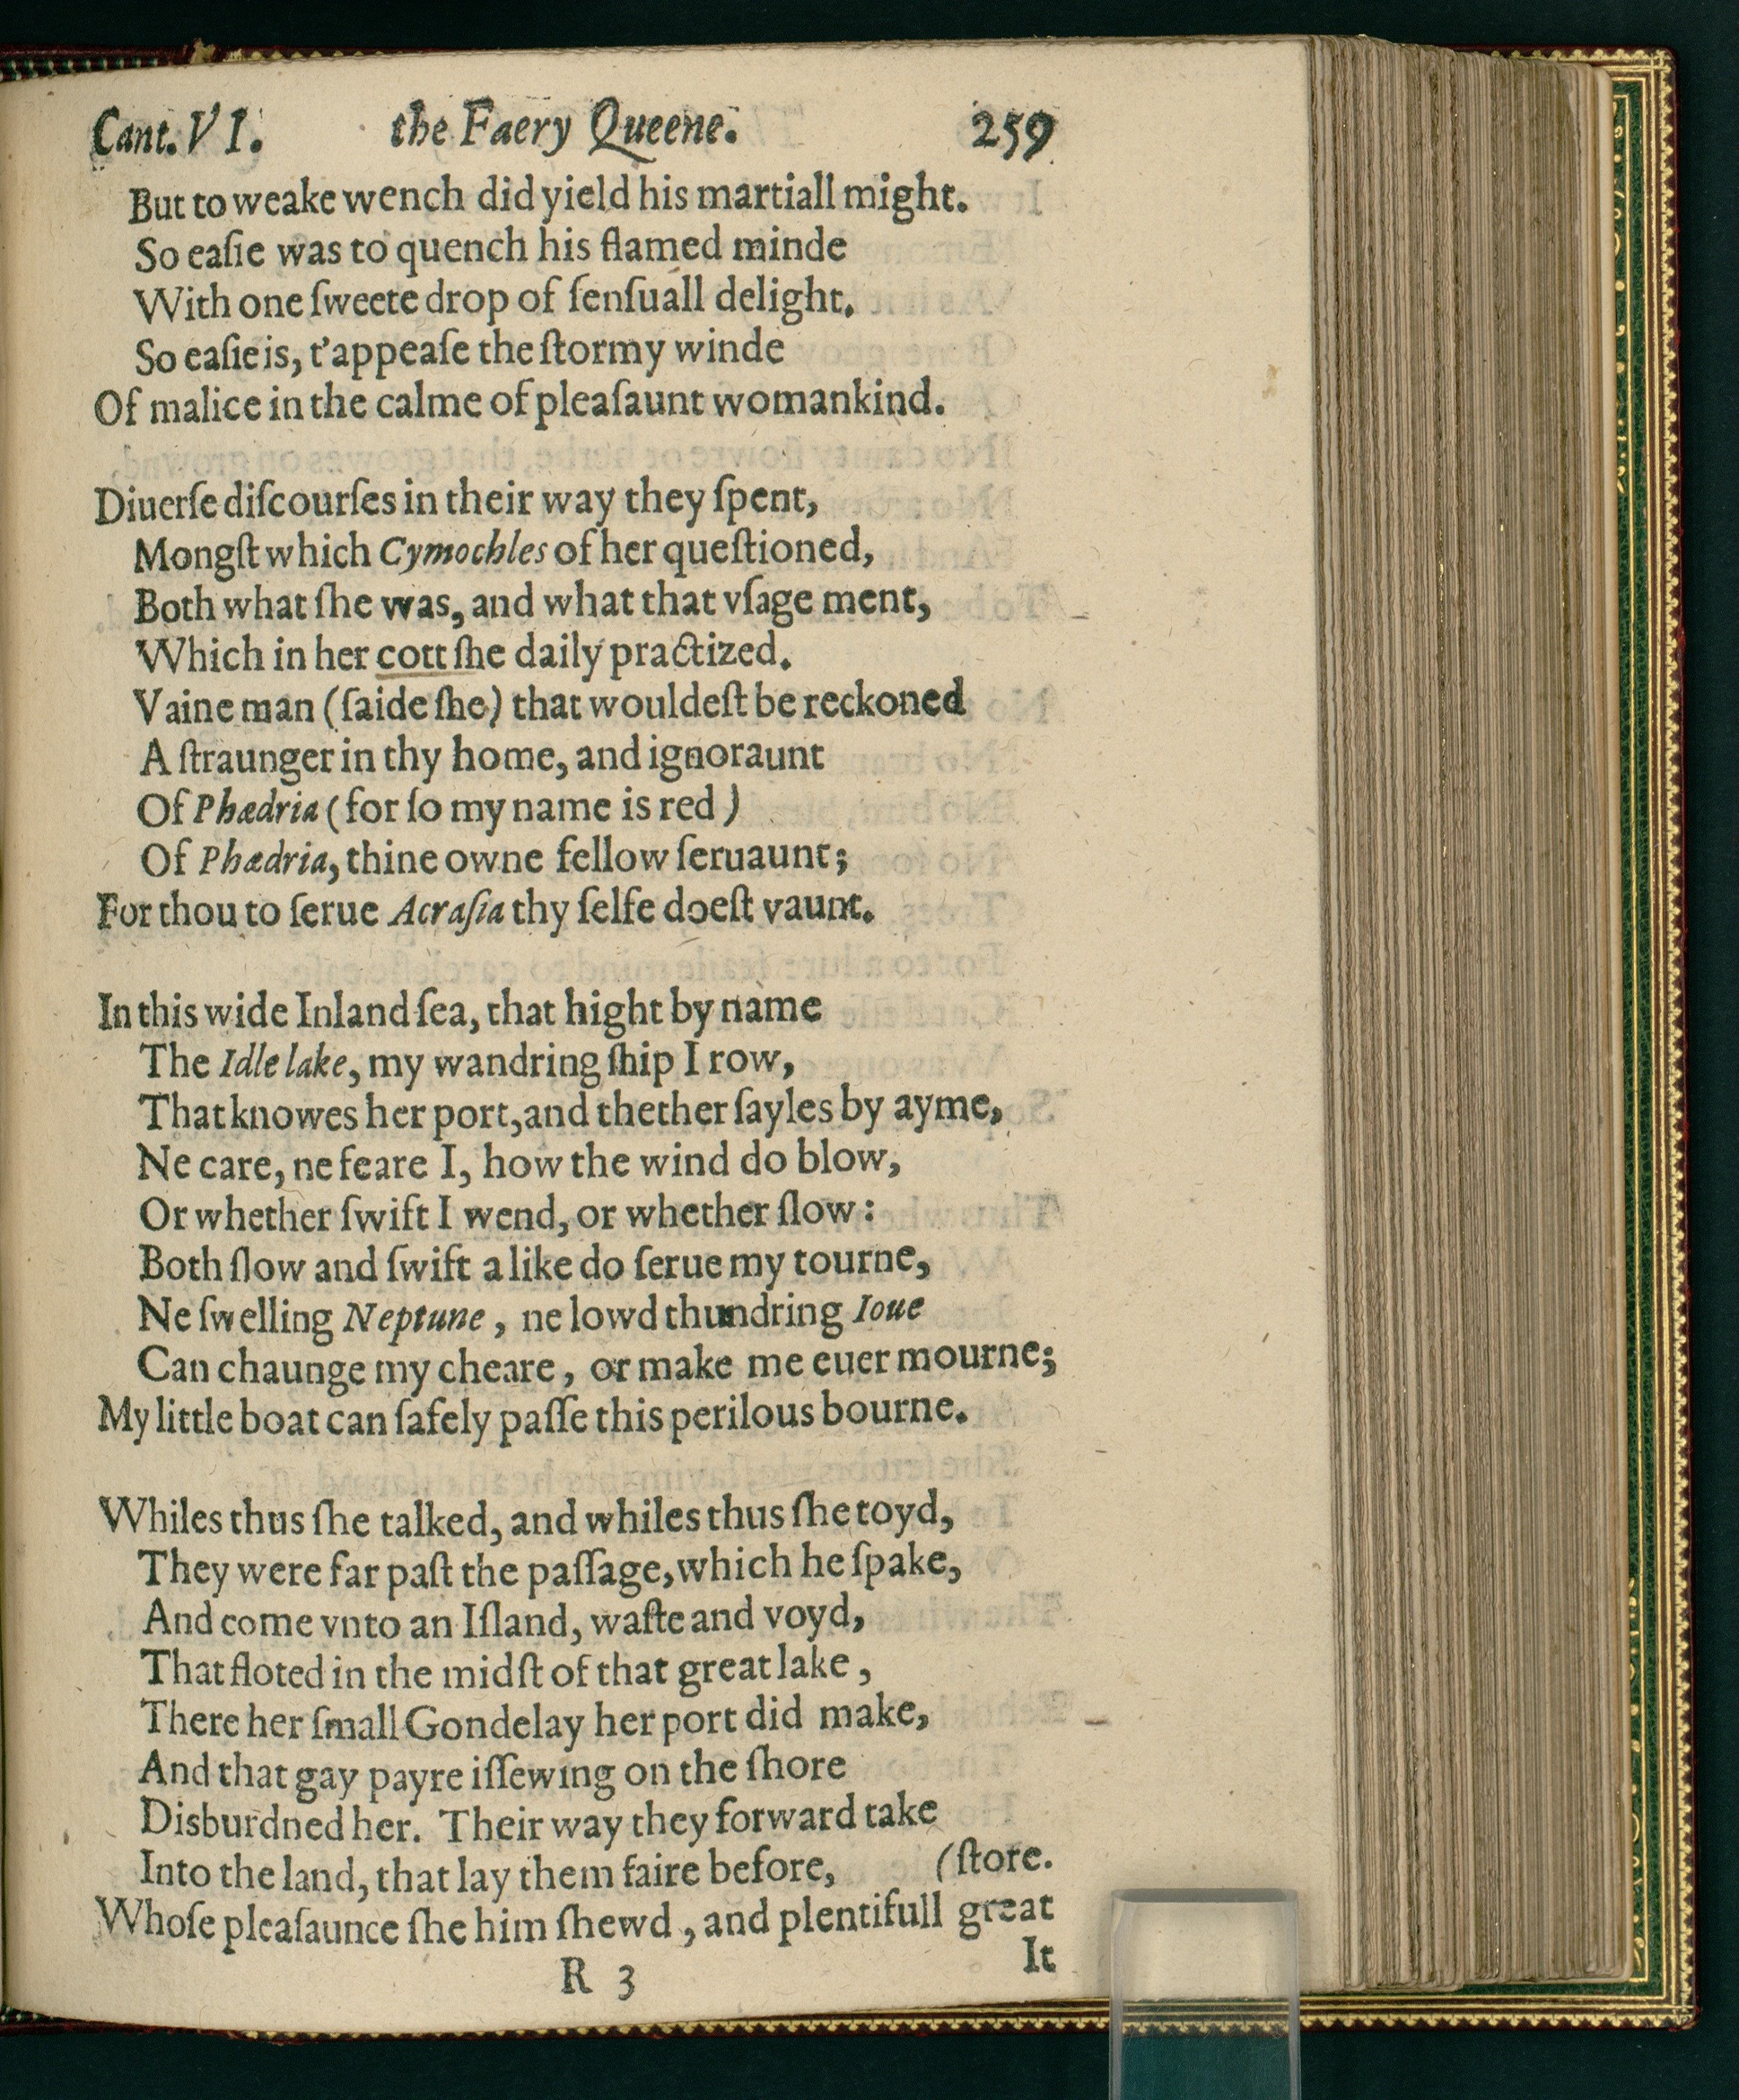 Cant. VI. the Faery Queene. 259
But to weake wench did yield his martiall might.
So eaſie was to quench his flamed minde
With one ſweete drop of ſenſuall delight.
So eaſie is, t'appeaſe the ſtormy winde
Of malice in the calme of pleaſaunt womankind.
Diuerſe diſcourſes in their way they ſpent,
Mongſt which Cymochles of her queſtioned,
Both what ſhe was, and what that vſage ment,
Which in her cott ſhe daily practized.
Vaine man (ſaide ſhe) that wouldeſt be reckoned
A ſtraunger in thy home, and ignoraunt
Of Phædria (for ſo my name is red)
Of Phædria, thine owne fellow ſeruaunt;
For thou to ſerue Acraſia thy ſelfe doeſt vaunt.
In this wide Inland ſea, that hight by name
The Idle lake, my wandring ſhip I row,
That knowes her port, and thether ſayles by ayme,
Ne care, ne feare I, how the wind do blow,
Or whether ſwift I wend, or whether ſlow:
Both ſlow and ſwift a like do ſerue my tourne,
Ne ſwelling Neptune, ne lowd thundring Ioue
Can chaunge my cheare, or make me euer mourne;
My little boat can ſafely paſſe this perilous bourne.
Whiles thus ſhe talked, and whiles thus ſhe toyd,
They were far paſt the paſſage, which he ſpake,
And come vnto an Iſland, waſte and voyd,
That floted in the midſt of that great lake,
There her ſmall Gondelay her port did make,
And that gay payre iſſewing on the ſhore
Disburdned her. Their way they forward take
Into the land, that lay them faire before, (ſtore.
Whoſe pleaſaunce ſhe him ſhewd, and plentifull great
R 3 It